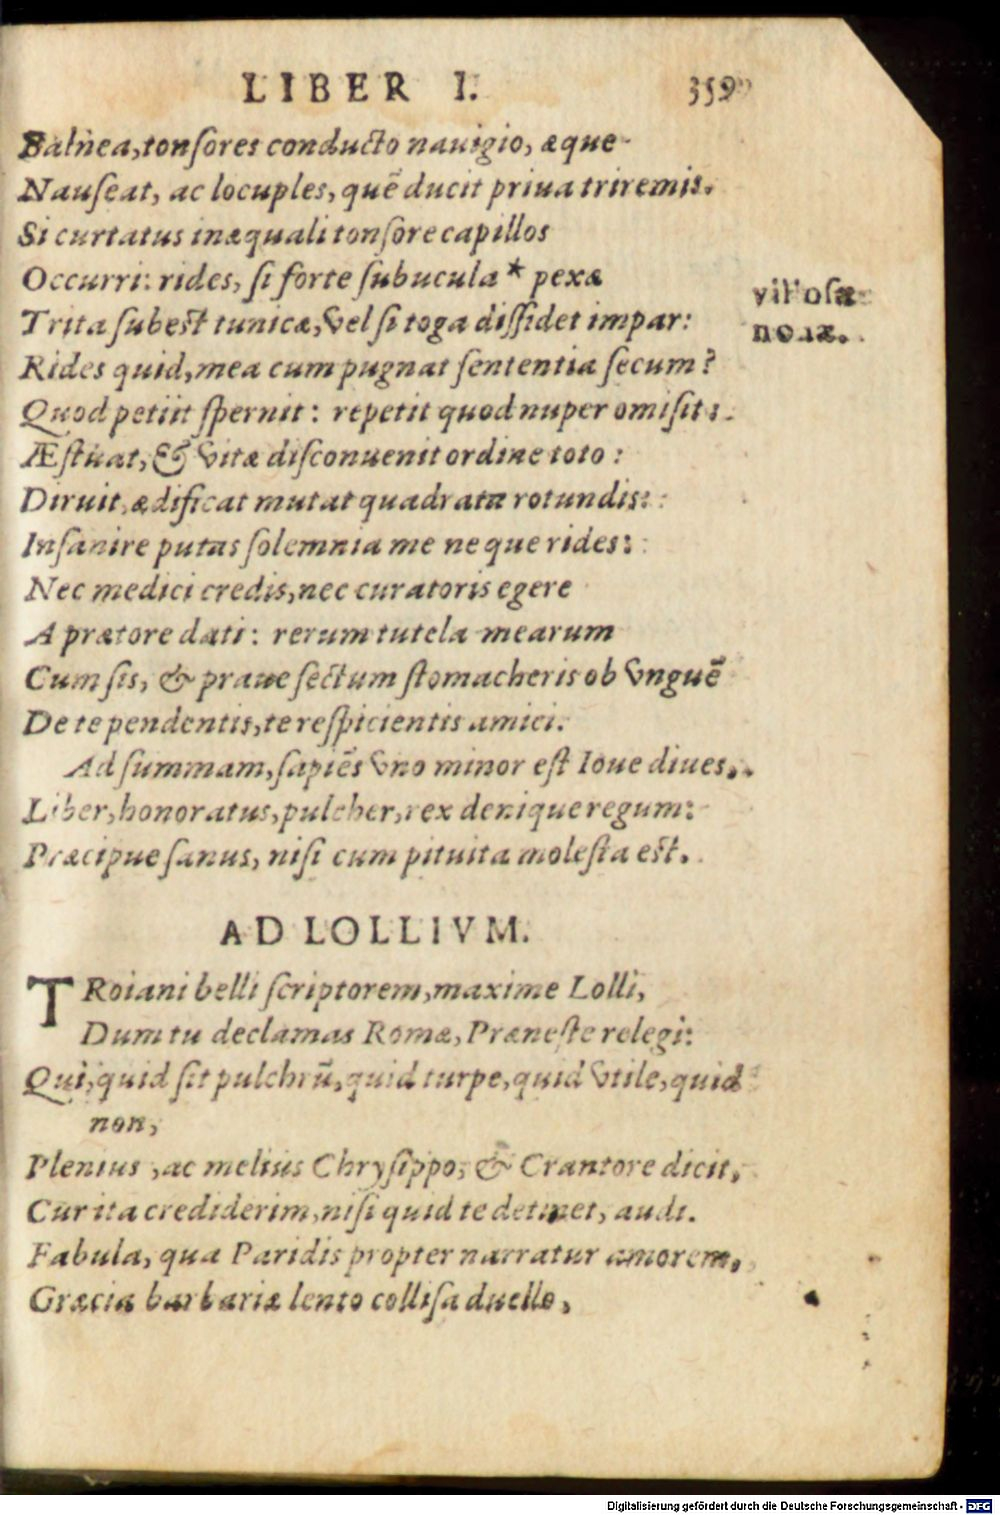 LIBER I. 359
Balnea, tonſores conducto nauigio, æque
Nauſeat, ac locuples, quē ducit priua triremis.
Si curtatus inæquali tonſore capillos
Occurri: rides, ſi forte ſubucula * pexæ
villoſæ
Trita ſubeſt tunicæ, vel ſi toga diſſidet impar:
nouæ.
Rides quid, mea cum pugnat ſententia ſecum?
Quod petiit ſpernit: repetit quod nuper omiſit:
Æſtuat, & vitæ diſconuenit ordine toto:
Diruit, ædificat mutat quadrata rotundis:
Inſanire putas ſolemnia me neque rides:
Nec medici credis, nec curatoris egere
A prætore dati: rerum tutela mearum
Cum ſis, & praue ſectum ſtomacheris ob vnguē
De te pendentis, te reſpicientis amici.
Ad ſummam, ſapiēs vno minor eſt Ioue diues,
Liber, honoratus, pulcher, rex denique regum:
Præcipue ſanus, niſi cum pituita moleſta eſt.
AD LOLLIVM.
TRoiani belli ſcriptorem, maxime Lolli,
Dum tu declamas Romæ, Præneſte relegi:
Qui, quid ſit pulchrū, quid turpe, quid vtile, quid
non,
Plenius, ac melius Chryſippo, & Crantore dicit,
Cur ita crediderim, niſi quid te detinet, audi.
Fabula, qua Paridis propter narratur amorem,
Græcia barbariæ lento colliſa duello,
Digitalisierung gefördert durch die Deutsche Forschungsgemeinschaft - DFG